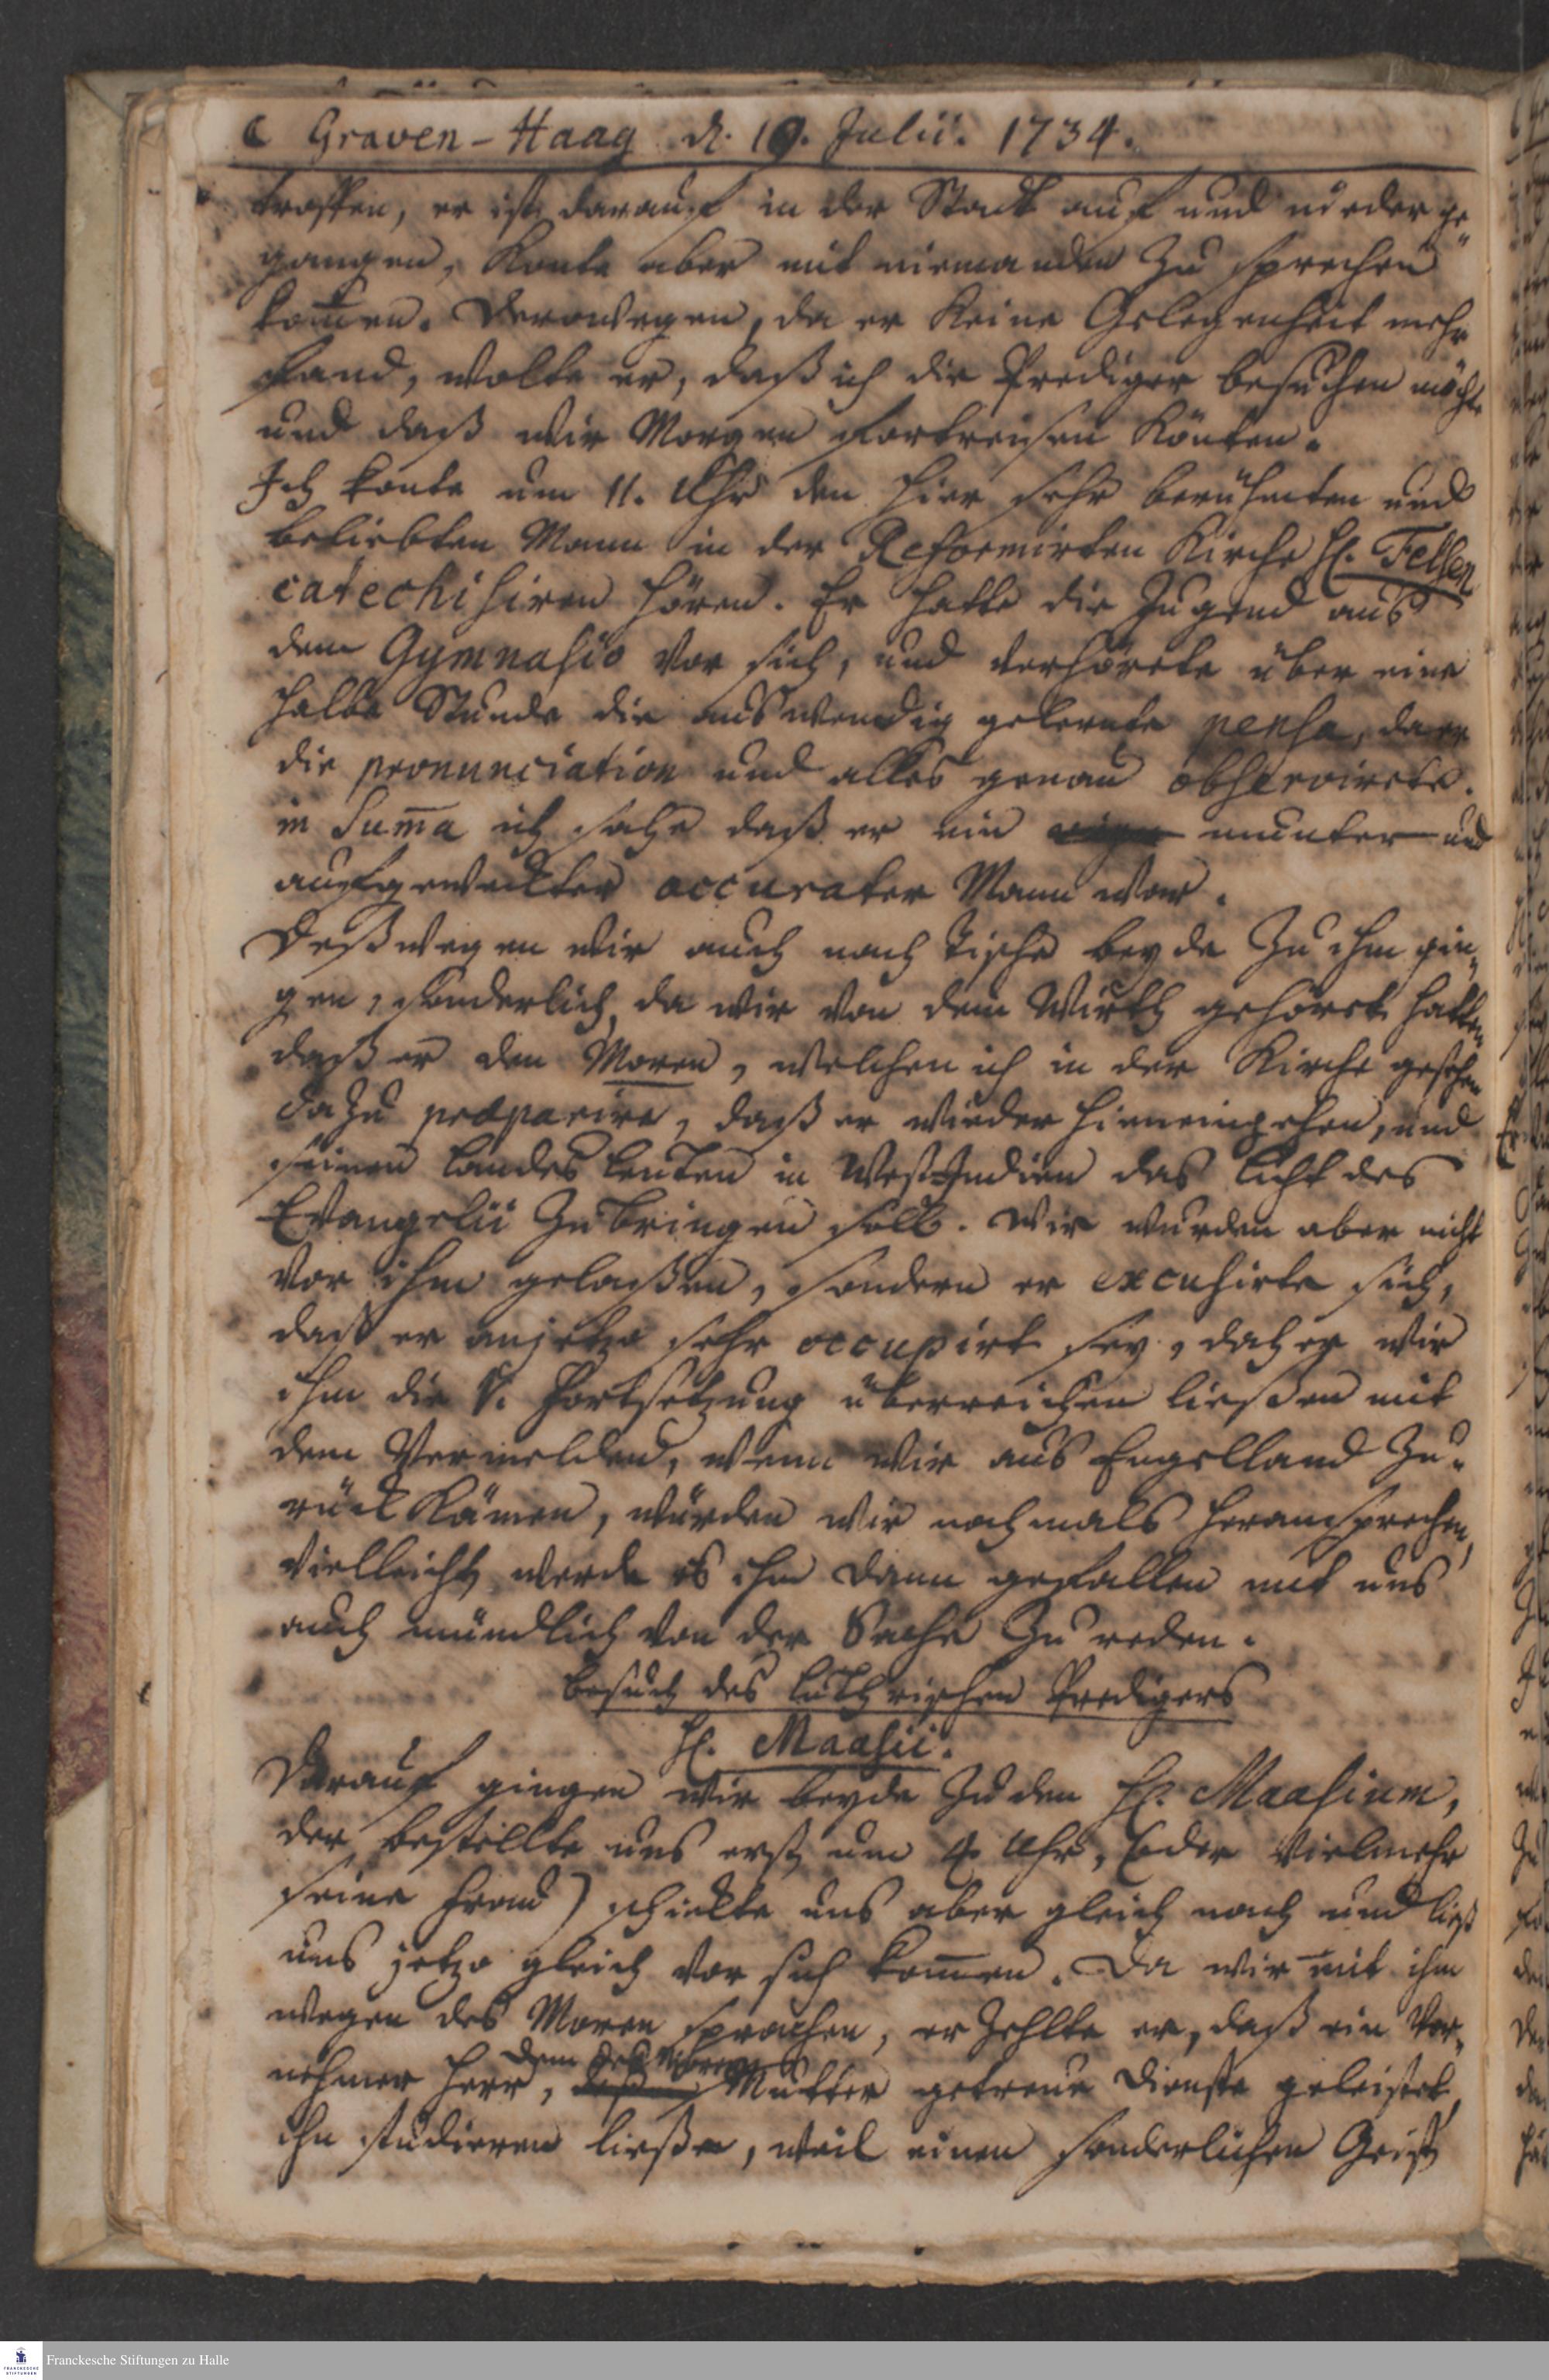 ☾ Graven-Haag d. 19. Julii. 1734.
troffen, er ist darauf in der Stadt auf und nieder ge„
gangen, konte aber mit niemanden zu sprechen
kom̅en. Derowegen, da er keine Gelegenheit mehr
fand, wolte er, daß ich die Prediger besuchen möchte
und daß wir Morgen fortreisen könten.
Ich konte um 11. Uhr den hier sehr berühmten und
beliebten Mann in der Reformirten Kirche H. Felsen
catechisiren hören. Er hatte die Jugend aus
dem Gymnasio vor sich, und verhörete über eine
halbe Stunde die auswendig gelernte pensa, da er
die pronunciation und alles genau observirete.
in Sum̅a ich sahe daß er ein munter und
aufgeweckter accurater Mann war.
Deßwegen wir auch nach Tische beyde zu ihm gin„
gen, sonderlich da wir von dem Wirth gehöret hatten
daß er den Moren, welchen ich in der Kirche gesehen
dazu præparire, daß er wieder hineingehen, und
seinen Landes Leuten in WestIndien das Licht des
Evangelii zu bringen soll. Wir wurden aber nicht
vor ihm gelaßen, sondern er excusirte sich,
daß er anjetzo sehr occupirt sey, daher wir
ihm die Fortsetzung überreichen ließen mit
dem Vermelden, wenn wir aus Engelland zu„
rück kämen, würden wir nochmals heransprechen,
vielleicht werde es ihm dann gefallen mit uns
auch mündlich von der Sache zu reden.
Besuch des Luthrischen Predigers
H. Maasii.
Darauf gingen wir beyde zu den H. Maasium,
der bestellte uns erst um 4. Uhr, (oder vielmehr
seine Frau) schickte uns aber gleich nach und ließ
uns jetzo gleich vor sich kom̅en. Da wir mit ihm
wegen des Moren sprachen, erzehlte er, daß ein Vor„
nehmer Herr, dem des Moren Mutter getreue Dienste geleistet,
ihn studieren ließe, weil einen sonderlichen Geist
Franckesche Stiftungen zu Halle